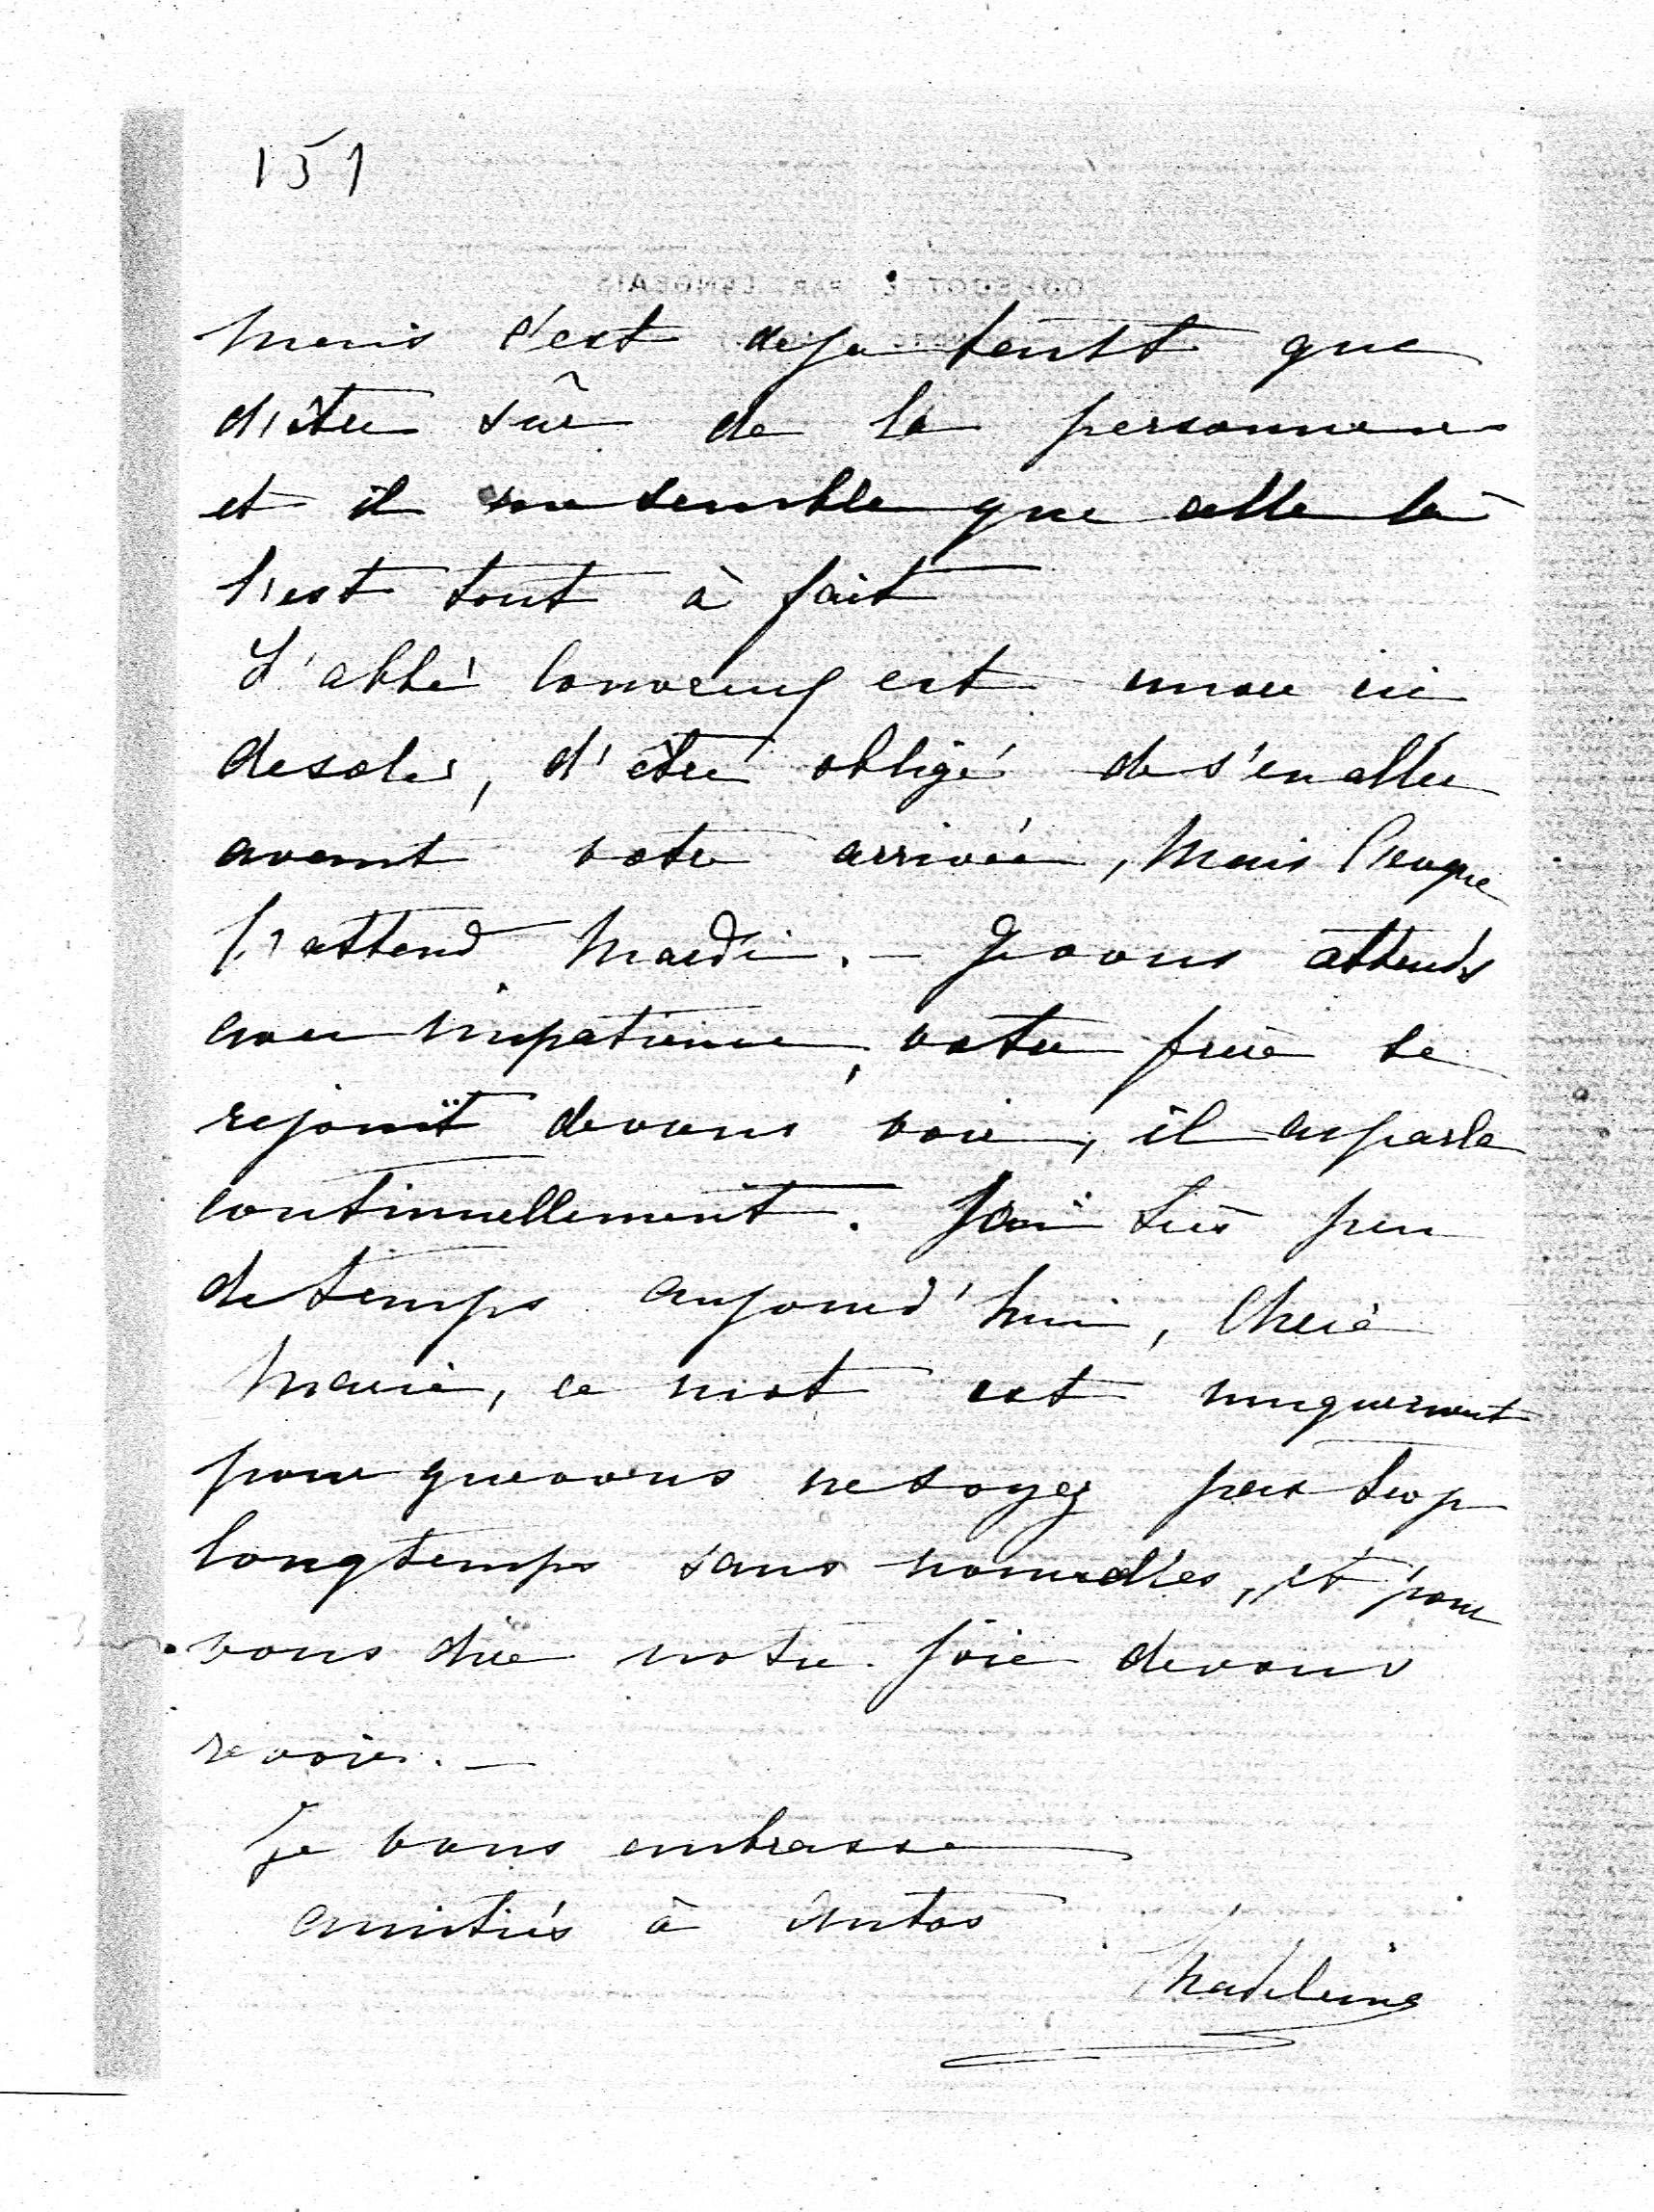 151
mais c'est deja tant que
d'être sûr de la personne
et il me semble que celle là
l'est tout à fait
L'abbé est encore ici
desolé, d'être obligé de s'en aller
avant votre arrivée, mais l'eveque
l'attend Mardi. — Je vous attends
avec impatience, votre frère se
rejouït de vous voir, il en parle
continuellement. J'ai très peu
de temps aujourd'hui, Chere
Marie, ce mot est uniquement
pour que vous ne soyez pas trop
longtemps sans nouvelles, et pour
vous dire notre joie de vous
revoir. —
Je vous embrasse
amitiés à
Madeleine